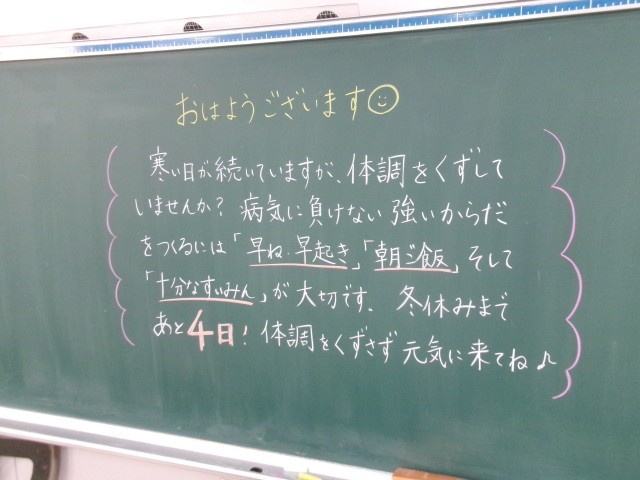 おはようございます
寒い日が続いていますが、体調をくずして
いませんか？病気に負けない強いからだ
をつくるには「早ね・早起き」「朝ご飯」そして
「十分なすいみん」が大切です。冬休みまで
あと4日！体調をくずさず元気に来てね♪